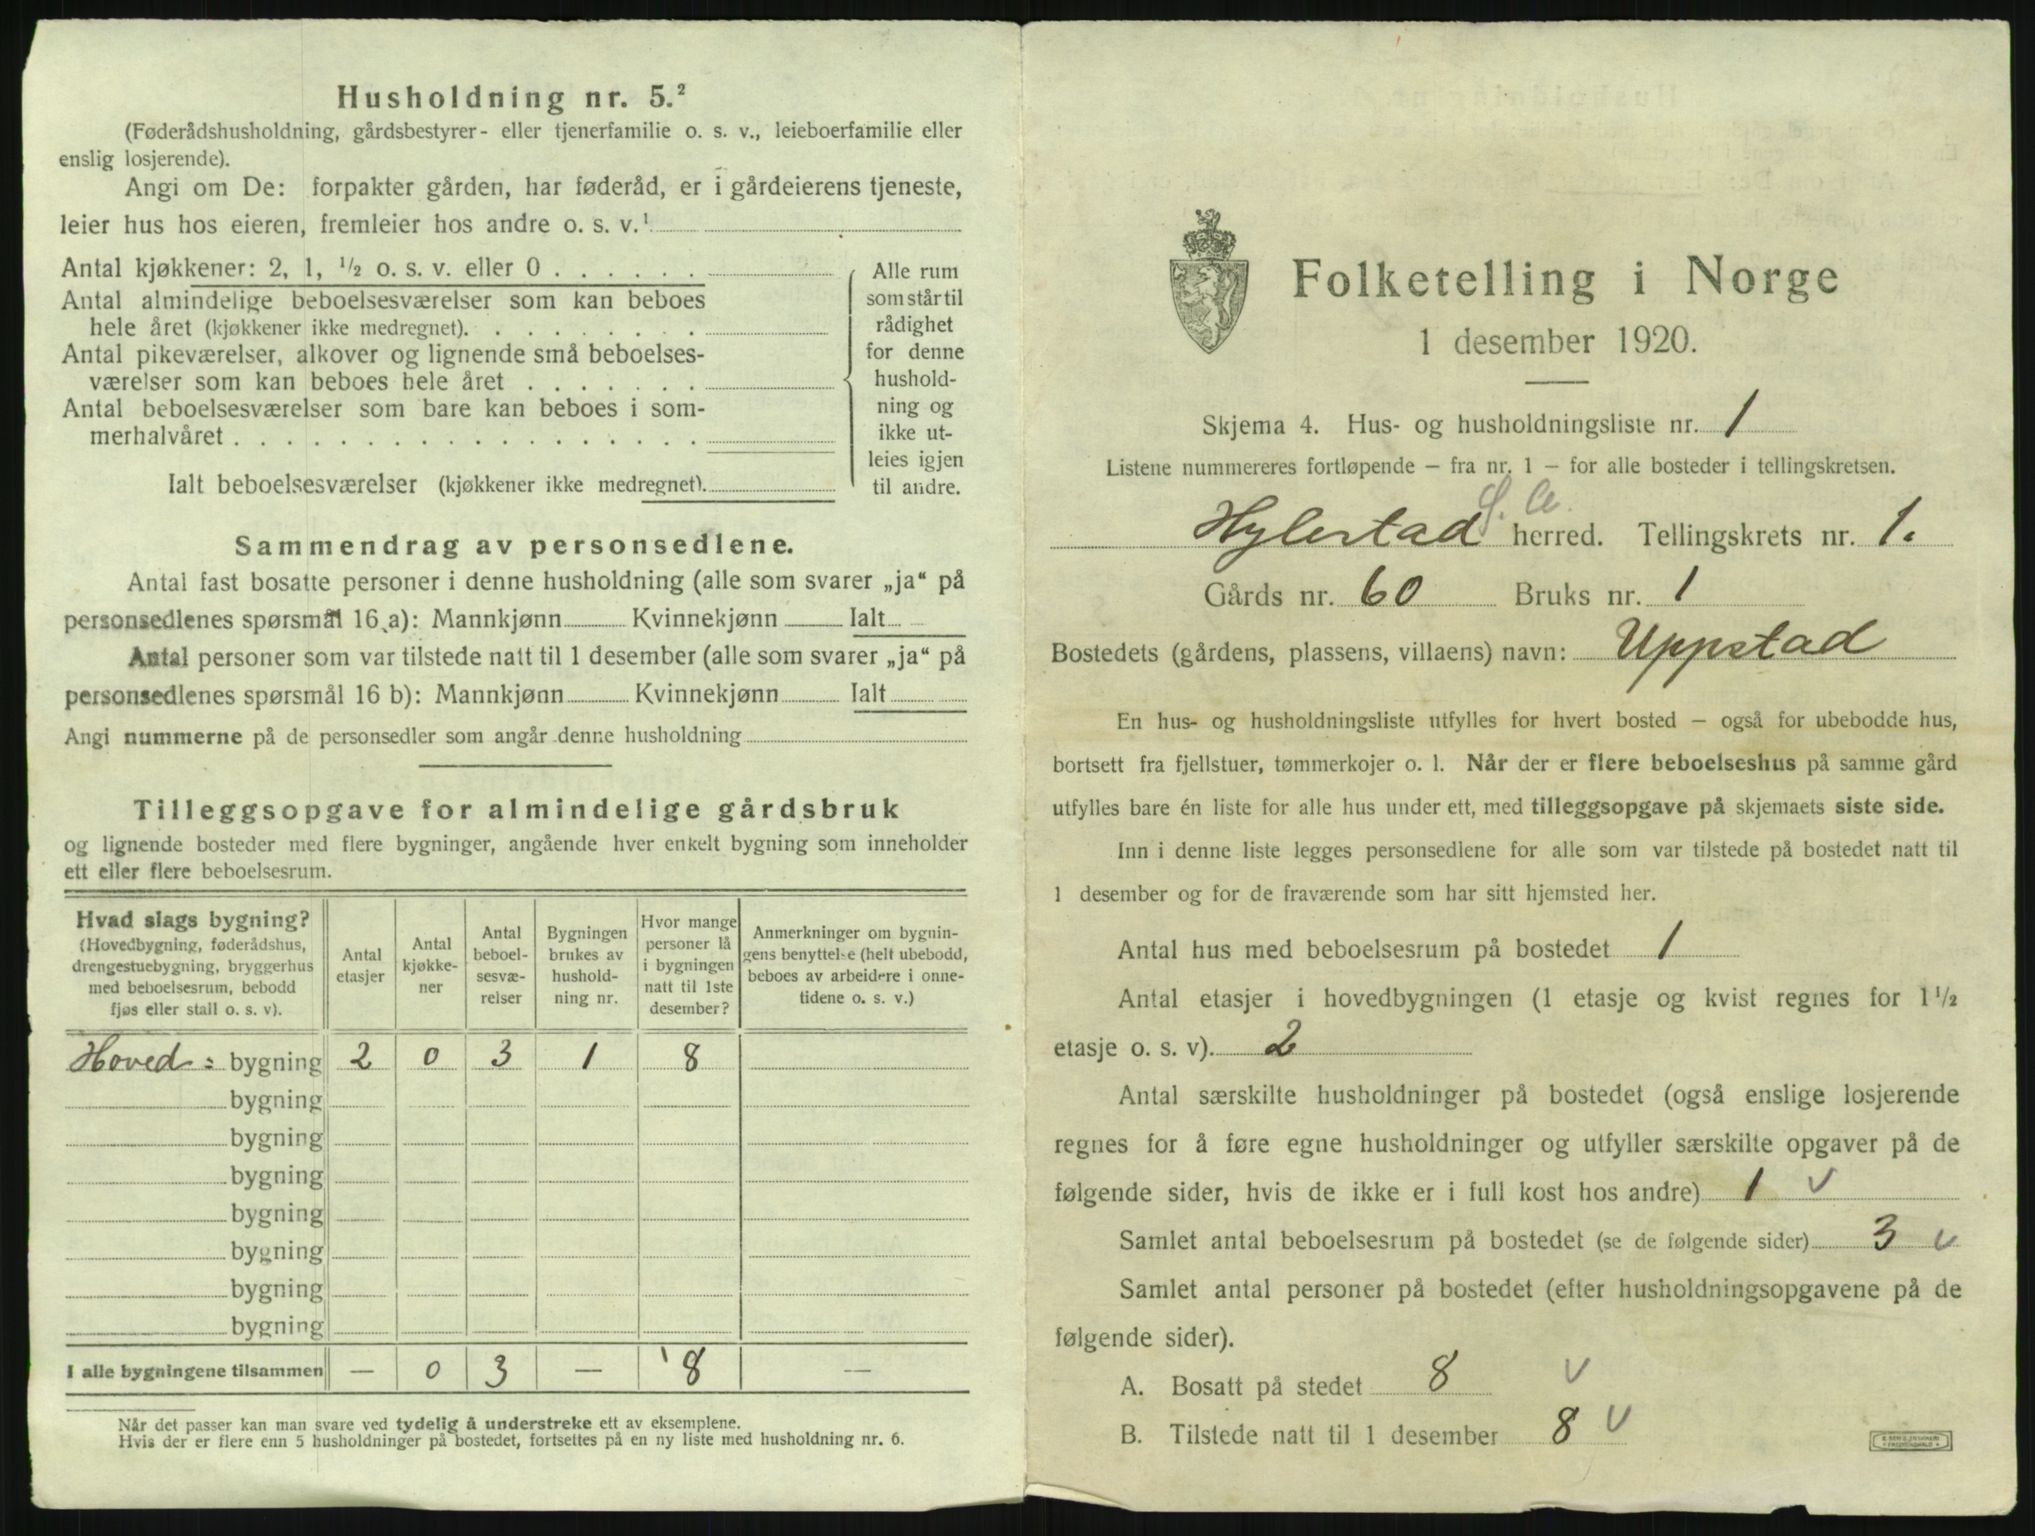 Husholdning nr. 5.²
(Føderådshusholdning, gårdsbestyrer- eller tjenerfamilie o. s. v., leieboerfamilie eller
enslig losjerende).
Angi om De: forpakter gården, har føderåd, er i gårdeierens tjeneste,
leier hus hos eieren, fremleier hos andre o. s. v.¹
Antal kjøkkener: 2, 1, ½ o. s. v. eller 0 . . . . . .
Antal almindelige beboelsesværelser som kan beboes
hele året (kjøkkener ikke medregnet). . . . . . . . .
Antal pikeværelser, alkover og lignende små beboelses-
værelser som kan beboes hele året . . . . . . .
Antal beboelsesværelser som bare kan beboes i som-
merhalvåret . . . . . . . . . . . . . . . . . .
Ialt beboelsesværelser (kjøkkener ikke medregnet).
Alle rum
som står til
rådighet
for denne
hushold-
ning og
ikke ut-
leies igjen
til andre.
Sammendrag av personsedlene.
Antal fast bosatte personer i denne husholdning (alle som svarer „ja“ på
personsedlenes spørsmål 16 a): Mannkjønn Kvinnekjønn Ialt
Antal personer som var tilstede natt til 1 desember (alle som svarer „ja“ på
personsedlenes spørsmål 16 b): Mannkjønn Kvinnekjønn Ialt
Angi nummerne på de personsedler som angår denne husholdning
Tilleggsopgave for almindelige gårdsbruk
og lignende bosteder med flere bygninger, angående hver enkelt bygning som inneholder
ett eller flere beboelsesrum.
Hvad slags bygning?
(Hovedbygning, føderådshus,
drengestuebygning, bryggerhus
med beboelsesrum, bebodd
fjøs eller stall o. s. v).
Antal
etasjer
Antal
kjøkke-
ner
Antal
beboel-
sesvæ-
relser
Bygningen
brukes av
hushold-
ning nr.
Hvor mange
personer lå
i bygningen
natt til 1ste
desember?
Anmerkninger om bygnin-
gens benyttelse (helt ubebodd,
beboes av arbeidere i onne-
tidene o. s. v.)
Hoved= bygning 2 0 3 1 8
bygning
bygning
bygning
bygning
bygning
bygning
bygning
I alle bygningene tilsammen — 0 3 — 8 —
Når det passer kan man svare ved tydelig å understreke ett av eksemplene.
Hvis der er flere enn 5 husholdninger på bostedet, fortsettes på en ny liste med husholdning nr. 6.
Folketelling i Norge
1 desember 1920.
Skjema 4. Hus- og husholdningsliste nr. 1
Listene nummereres fortløpende – fra nr. 1 – for alle bosteder i tellingskretsen.
Hylestad herred. Tellingskrets nr. 1.
Gårds nr. 60 Bruks nr. 1
Bostedets (gårdens, plassens, villaens) navn: Uppstad
En hus- og husholdningsliste utfylles for hvert bosted – også for ubebodde hus,
bortsett fra fjellstuer, tømmerkojer o. l. Når der er flere beboelseshus på samme gård
utfylles bare én liste for alle hus under ett, med tilleggsopgave på skjemaets siste side.
Inn i denne liste legges personsedlene for alle som var tilstede på bostedet natt til
1 desember og for de fraværende som har sitt hjemsted her.
Antal hus med beboelsesrum på bostedet 1
Antal etasjer i hovedbygningen (1 etasje og kvist regnes for 1½
etasje o. s. v). 2
Antal særskilte husholdninger på bostedet (også enslige losjerende
regnes for å føre egne husholdninger og utfyller særskilte opgaver på de
følgende sider, hvis de ikke er i full kost hos andre) 1 v
Samlet antal beboelsesrum på bostedet (se de følgende sider) 3 v
Samlet antal personer på bostedet (efter husholdningsopgavene på de
følgende sider).
A. Bosatt på stedet 8 v
B. Tilstede natt til 1 desember 8 v